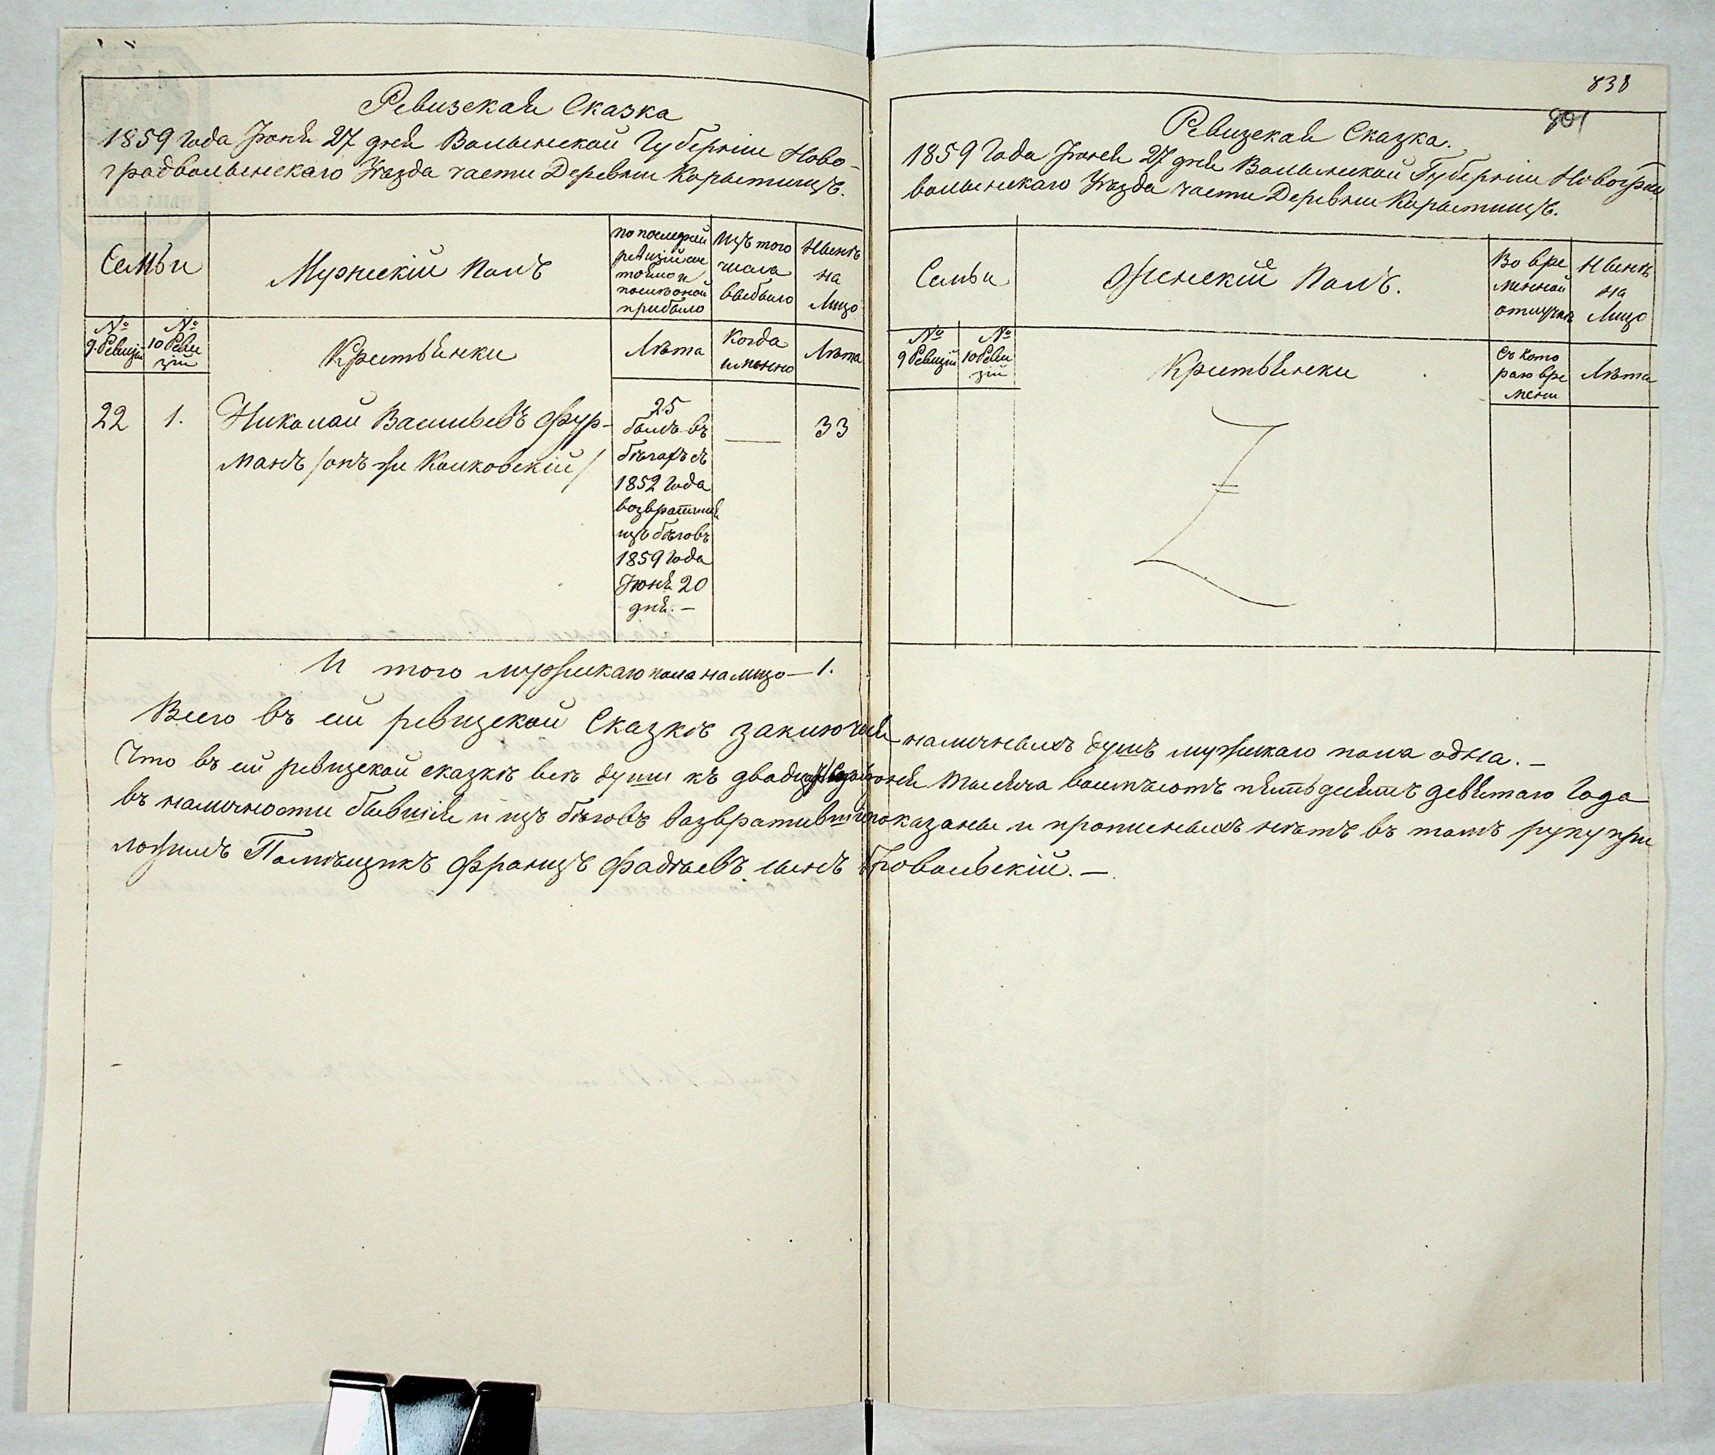 Ревизская Сказка
1859 Года Июня 27 дня Волынской Губернии Ново-
градволынскаго Уезда части Деревни Карытищъ.
Семьи
Мужескій Полъ
по последней
ревизіи со
тояло и
после оной
прибыло
Изъ того
числа
выбыло
Ныне
на
Лицо
№
9 Ревизіи
№
10 Реви
зіи
Крестьянки
Лѣта
Когда
именно
Лѣта
22
1.
Николай Васильевъ Фур-
манъ /онъ же Колковскій/
25
былъ въ
бѣгахъ съ
1852 Года
возвратился
изъ бѣговъ
1859 Года
Июня 20
дня. —
33
И того мужескаго пола на лицо — 1.
838
801
Ревизская Сказка.
1859 Года Июня 27 дня Волынской Губерніи Новоград
волынскаго Уѣзда части Деревни Карытищъ.
Семьи
Женскій Полъ.
Во вре
менной
отлучкѣ
Нынѣ
на
Лицо
№
9 Ревизіи
№
10 Реви
зіи
Крестьянки
Съ кото
раго вре
мени
Лѣта
Всего въ сей ревизской Сказкѣ заключая наличныхъ душъ мужескаго пола одна. —
Что въ сей ревизской сказкѣ всѣ души къ Июня тысяча восемьсотъ пятьдесятъ девятаго Года
въ наличности бывшія и изъ бѣговъ возвратившій показаны и прописныхъ нѣтъ въ томъ руку при
ложилъ Помѣщикъ Францъ Фадѣевъ сынъ. —